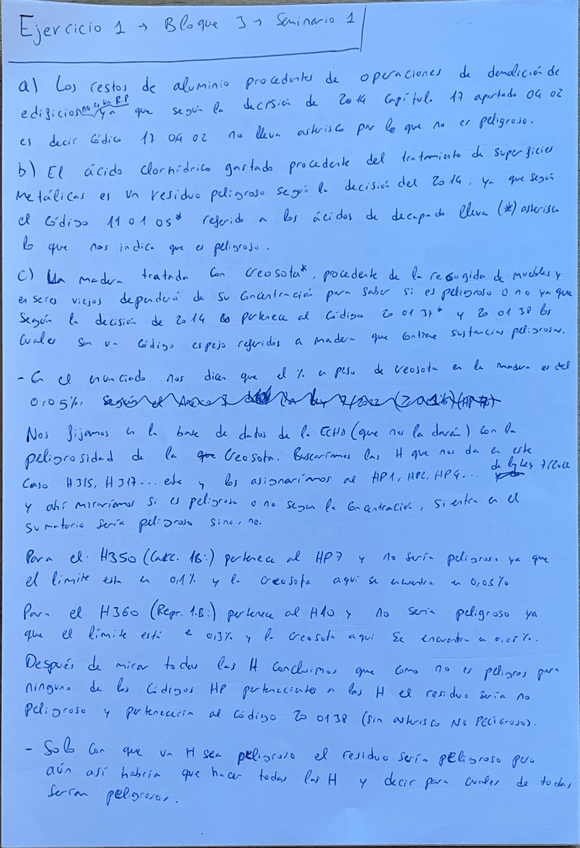 Ejercicio 1 → Bloque 3 → Seminario 1
a) Los restos de aluminio procedentes de operaciones de demolición de
edificios no es un R.P ya que según la decisión de 2014 Capítulo 17 apartado 04 02
es decir Código 17 04 02 no lleva asterisco por lo que no es peligroso.
b) El ácido clorhídrico gastado procedente del tratamiento de superficies
metálicas es un residuo peligroso según la decisión del 2014, ya que según
el código 11 01 05* referido a los ácidos de decapado lleva (*) asterisco
lo que nos indica que es peligroso.
c) La madera tratada con creosota*, procedente de la recogida de muebles y
enseres viejos dependerá de su concentración para saber si es peligroso o no ya que
según la decisión de 2014 pertenece al código 20 01 37* y 20 01 38 los
cuales son un código espejo referidos a madera que contiene sustancias peligrosas.
- En el enunciado nos dicen que el % en peso de creosota en la madera es del
0,05%. según el
Nos fijamos en la base de datos de la ECHA (que nos la darán) con la
peligrosidad de la creosota. Buscaríamos las H que nos da en este
caso H315, H317... etc y los asignaríamos al HP1, HP2, HP4... de ley 7/2022
y ahí miraríamos si es peligroso o no según la concentración, si entra en el
sumatorio sería peligroso sino, no.
Para el H350 (Carc. 1B:) pertenece al HP7 y no sería peligroso ya que
el límite está en 0,1% y la creosota aquí se encuentra en 0,05%
Para el H360 (Repr. 1B:) pertenece al H10 y no sería peligroso ya
que el límite está e 0,3% y la creosota aquí se encuentra a 0,05%.
Después de mirar todas las H concluimos que como no es peligros para
ninguno de los códigos HP perteneciente a las H el residuo sería no
peligroso y pertenecería al código 20 01 38 (sin asterisco NO PELIGROSO).
- Solo con que un H sea peligroso el residuo sería peligroso pero
aún así habría que hacer todas las H y decir para cuales de todas
serían peligrosos.